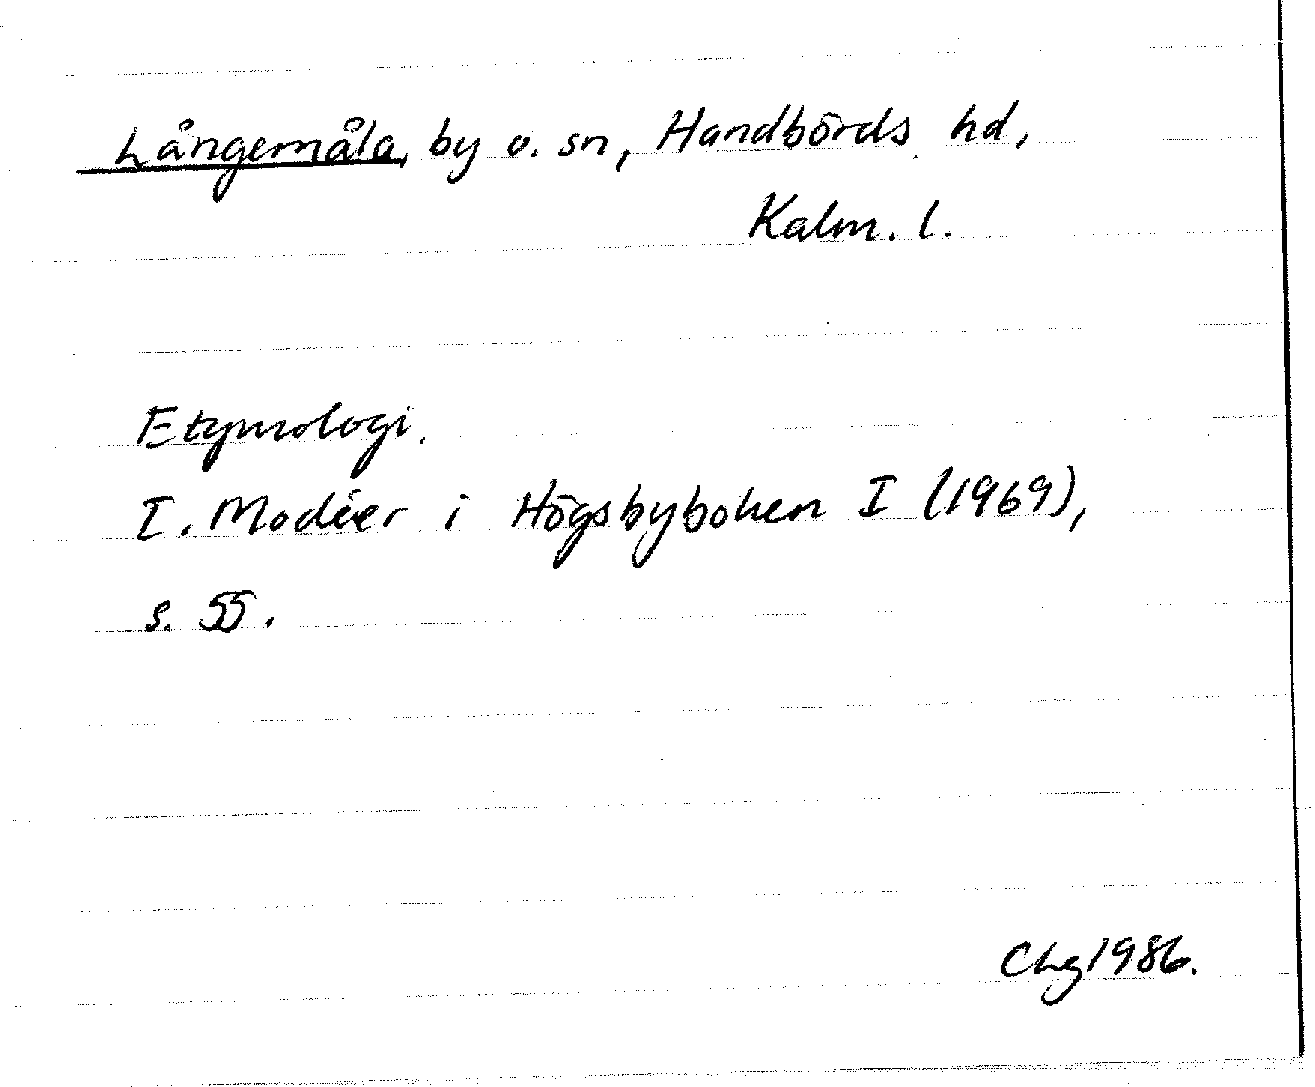 Långemåla, by o. sn, Handbörds hd,
Kalm. l.
Etymologi.
I. Modéer i Högsbyboken I (1969),
s. 55.
Chg 1986.